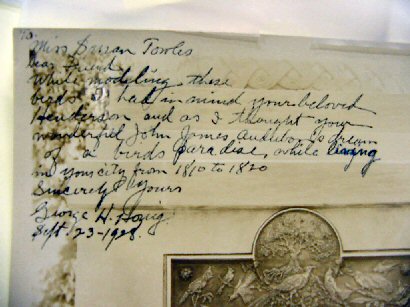 To-
Miss Susan Towles
Dear friend
While modeling these
birds I had in mind your beloved
Henderson and as I thought your
wonderful John James Audubon's dream
of a birds paradise, while living
in your city from 1810 to 1820
Sincerely Yours
George H. Honig
Sept. 23-1928.